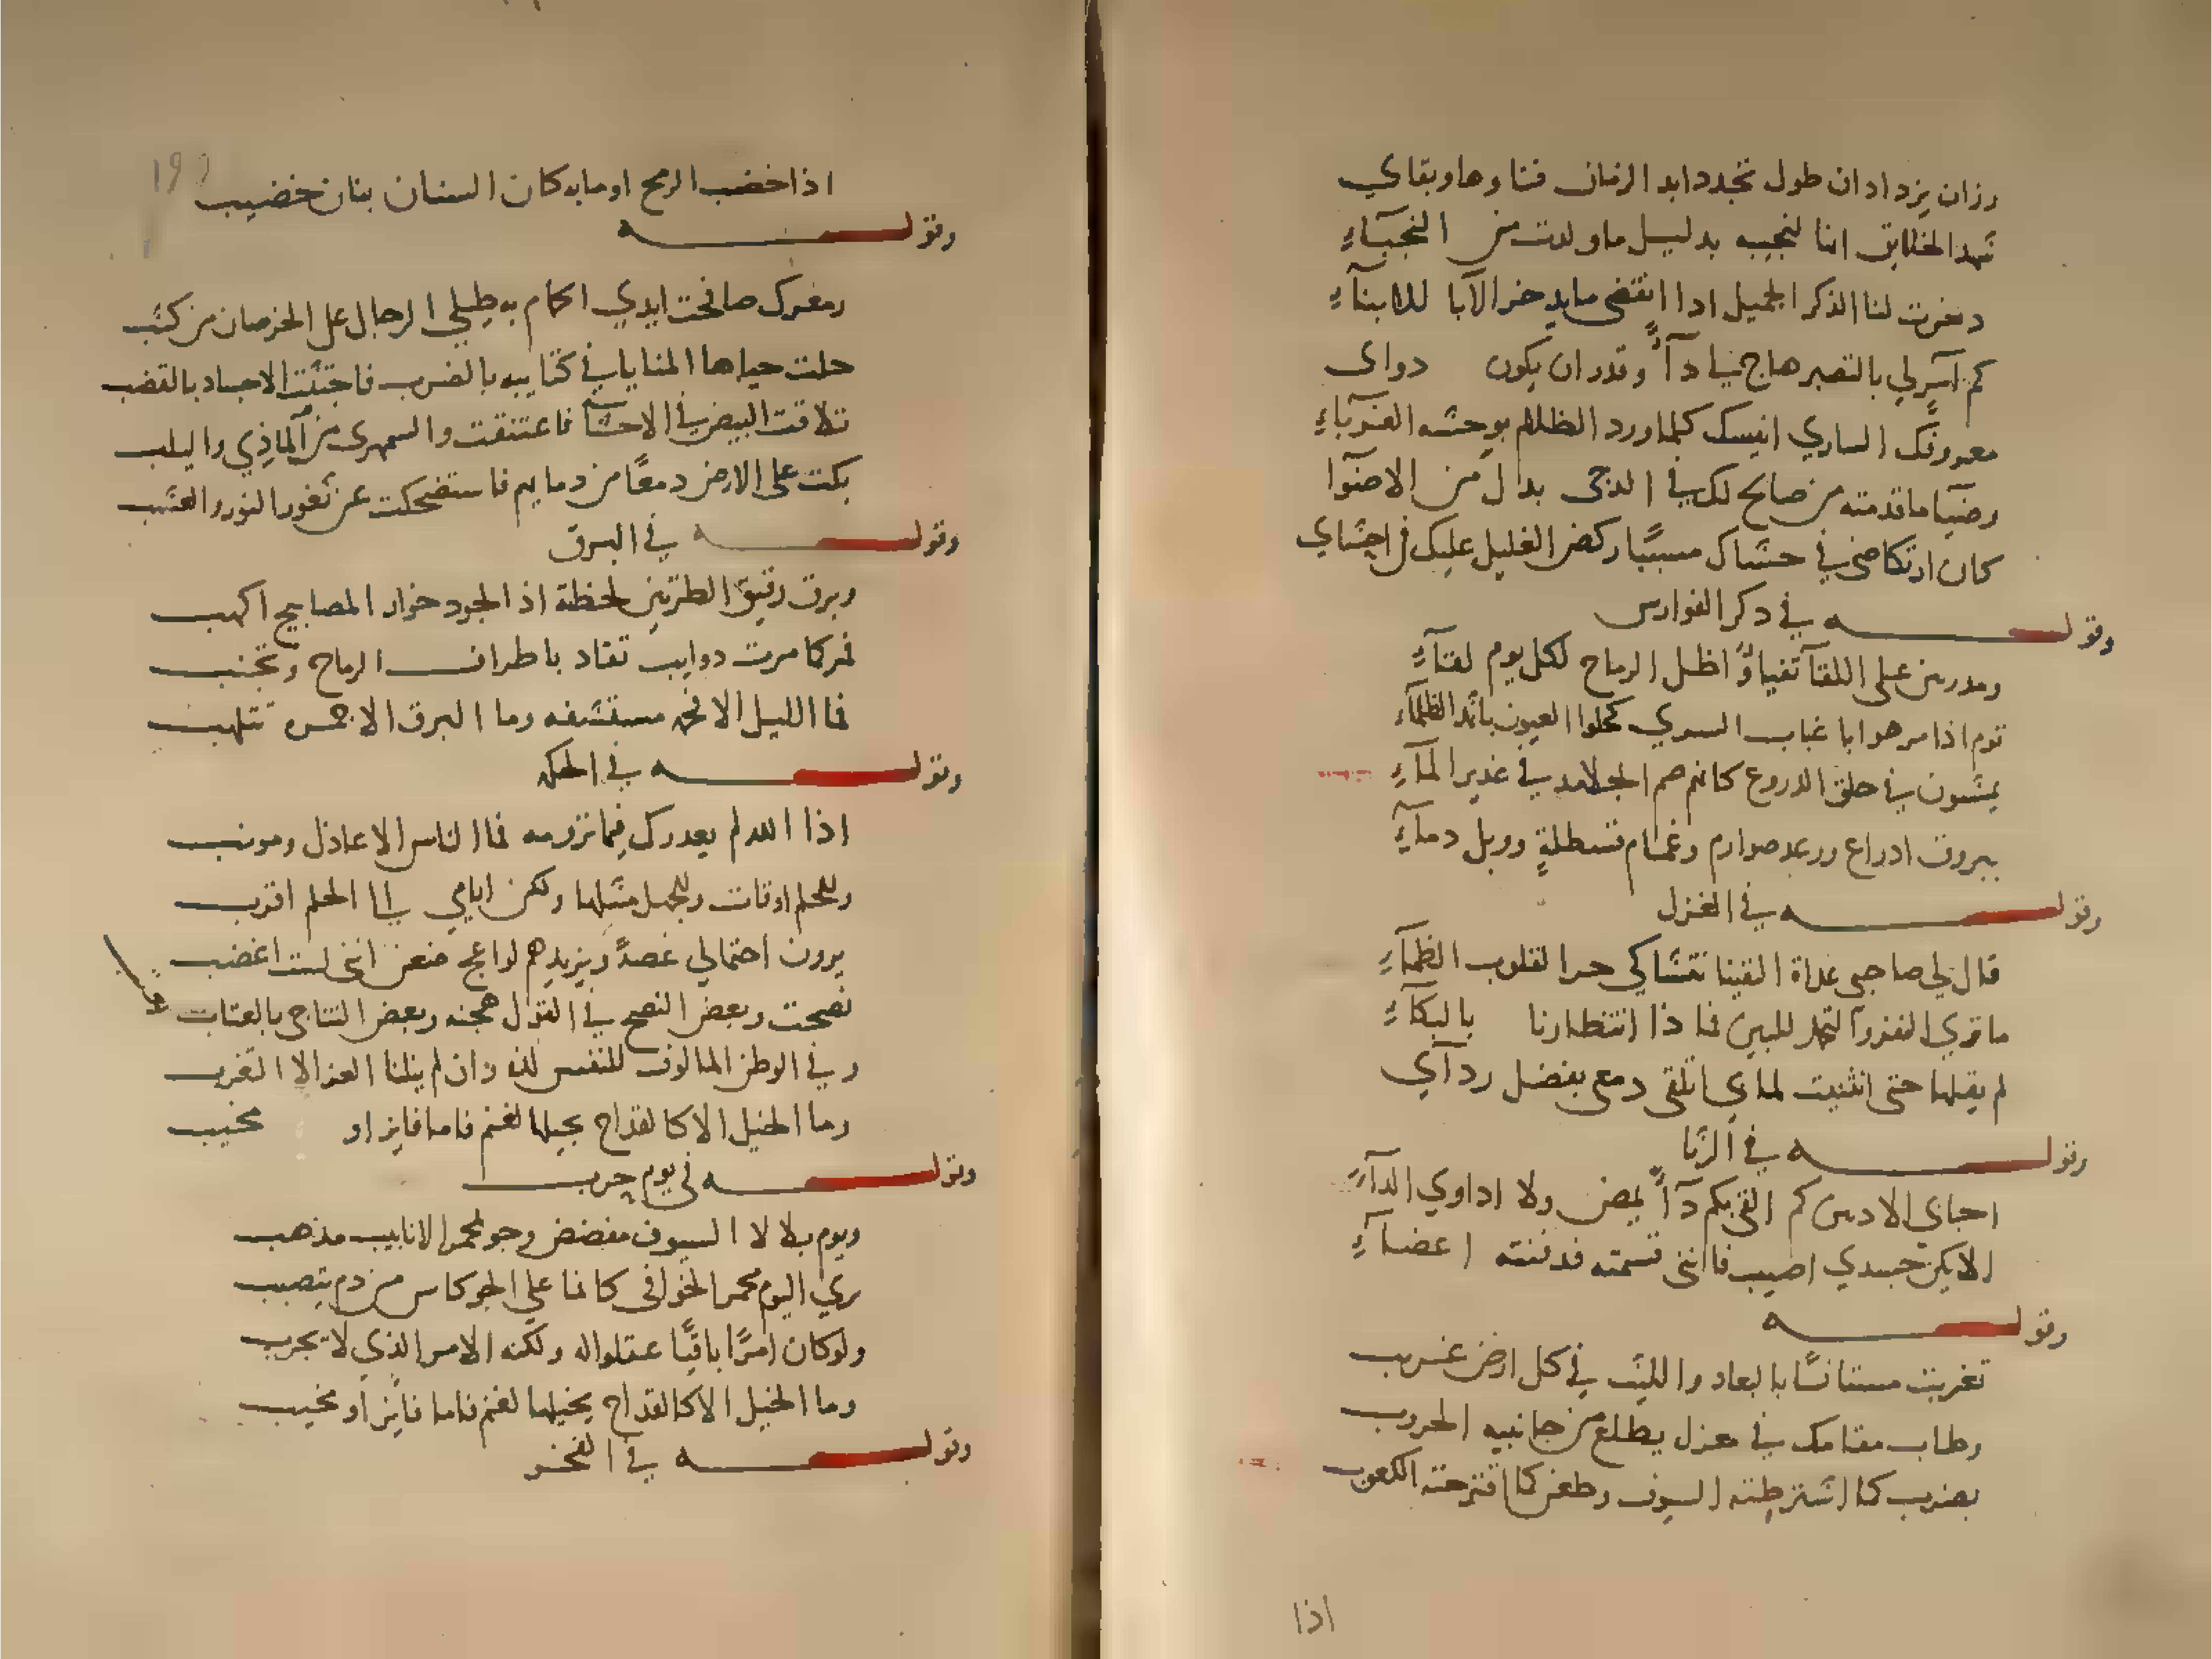 رزان يزداد ان طول تجدد ابد الزمان فناوها وبقاي
شهد الخلايق انها لنجيبه بدليل ما ولدت من النجبآءِ
دخرت لنا الذكر الجميل اذا انقضى ما يدخر الآبا للابنآءِ
كم آسر لي بالتصبر هاج لي دآءً وقدر ان يكون دواى
معروفك الساري انيسك كلما ورد الظلام بوحشه الغبرآءِ
وضيآ ما قدمته من صالح لك في الدجى بدل من الاضوآ
كان ارتكاضى في حشاك مسببا ركض الغليل عليك في احشاي
وقولـــه في ذكر الفوارس
ومدربين على اللقآ تفياوٌا ظلل الرماح لكل يوم لقآءِ
قوم اذا مرهوا باغباب السري كحلوا العيون باثمد الظلمآءِ
يمشون في حلق الدروع كانهم صم الجلامد في غدير المآءِ
ببروق ادراع ورعد صوارم وغمام قسطلةٍ ووبل دمآءِ
وقولـــه في الغزل
قال لي صاحبى غداة التقينا نتشاكي حر القلوب الظمآءِ
ما تري النفر والتحمل للبين فما ذا انتظارنا بالبكآءِ
لم يقلها حتى انثنيت لما بي اتلقى دمعى بفضل ردآي
وقولـــه في الرثا
احباي الادنين كم القى بكم دآءً يمض ولا اداوي الدآءِ
الا يكن جسدي اصيب فانني قسمته فدفنته اعضآءِ
وقولـــه
تغربت مستانسًا بالبعاد والليث في كل ارض غريب
وطاب مقامك في منزل يطلع من جانبيه الحروب
بضرب كما اشترطته السيوف وطعن كما اقترحته الكعوب
اذا
اذا خضب الرمح اوما به كان السنان بنان خضيب
وقولـــه
ومعرك صافحت ايدي الحمام به طلى الرجال على الخرصان من كثب
حلت حباها المنايا في كتايبه بالضرب فاجتثت الاجساد بالقضب
تلاقت البيض في الاحشآ فاعتنقت والسمهرى من الماذِي واليلب
بكت على الارض دمعًا من دمايهم فاستضحكت عن ثغور النور والعشب
وقولـــه في البرق
وبرق رقيق الطرتين لحظته اذا الجود خوار المصابيح اكهب
فمر كما مرت ذوايب تقاد باطراف الرماح وتجنب
فما الليل الا فحمه مستشفه وما البرق الا جمره تتلهب
وقولـــه في الحكمه
اذا الله لم يعذرك فيما ترومه فما الناس الا عاذل ومونب
وللحلم اوقات وللجهل مثلها ولكن ايامي الي الحلم اقرب
يرون احتمالي غصةً ويزيدهم لواعج ضغن انني لست اغضب
نصحت وبعض النصح في القول هجنه وبعض التناجى بالعتاب
وفي الوطن المالوف للنفس لذه وان لم ينلنا العز الا التغرب
وما الخيل الا كالقداح بجيلها لغنم فاما فايز او مخيب
وقولـــه في يوم حرب
ويوم بلالا السيوف مفضض وجو لمحمر الانابيب مذهب
تري اليوم محمر الخوافى كانما على الجو كاس من دم يتصبب
ولو كان امرًا باقيًا عقلوا له ولكنه الامر الذي لا تجرب
وما الخيل الا كالقداح يخيلها لغنم فاما فايز او مخيب
وقولـــه في الفخر